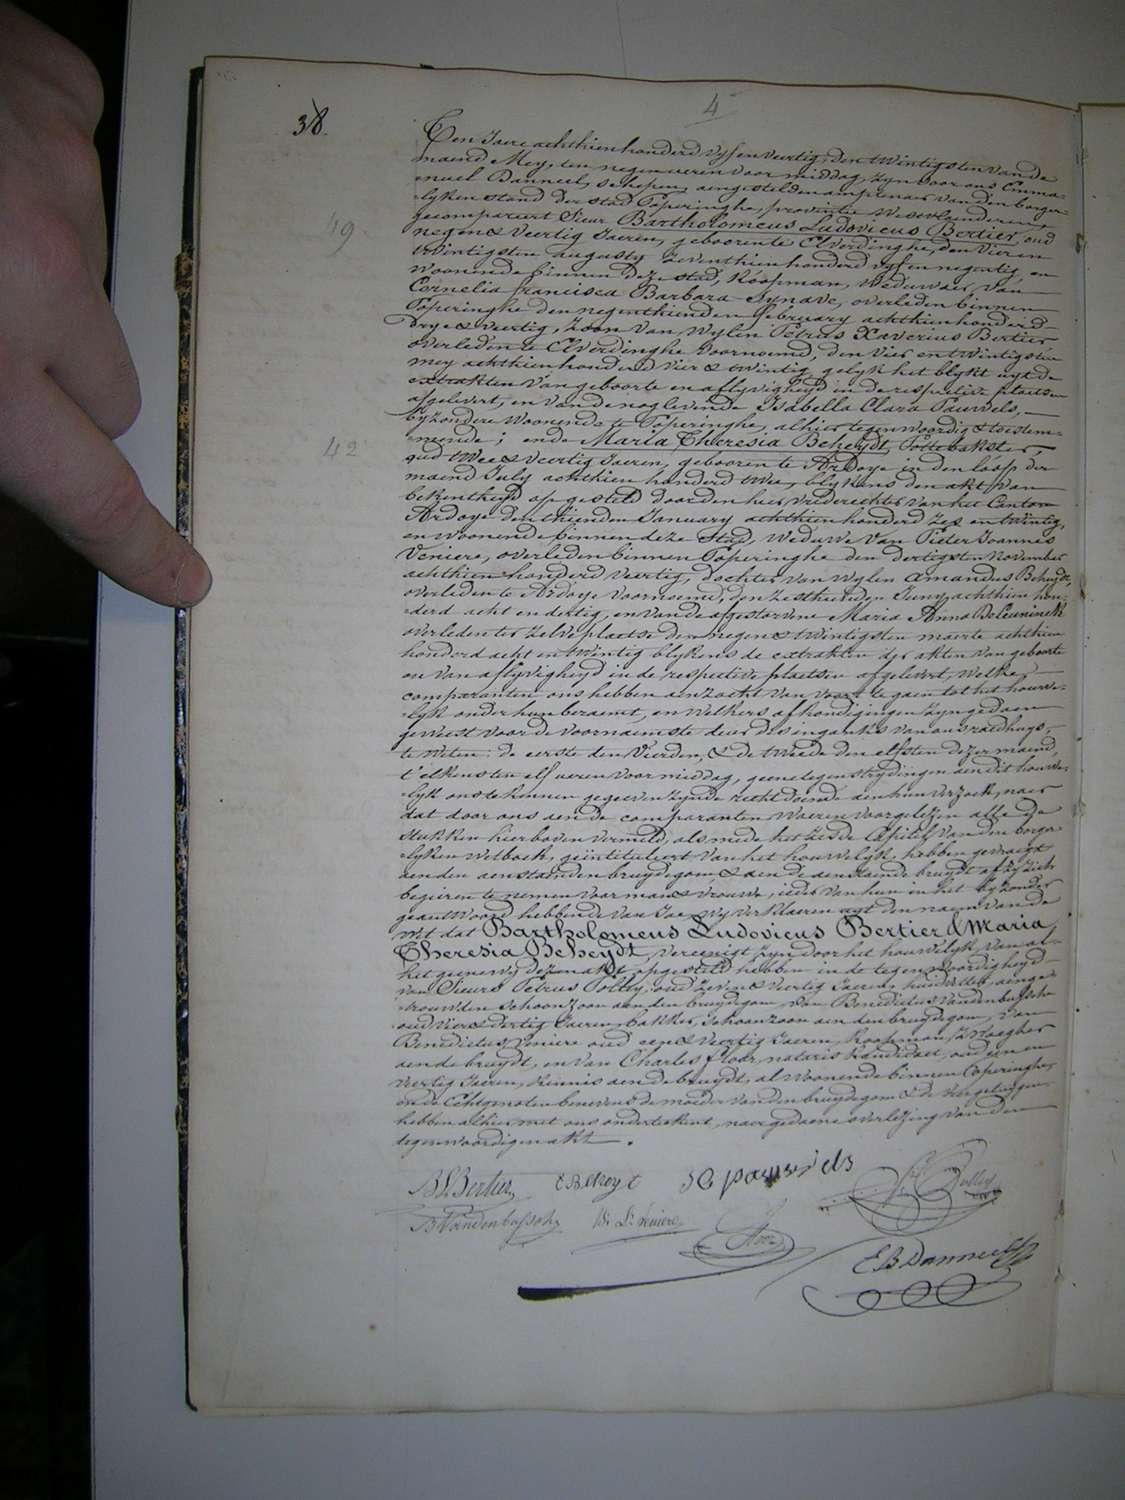 4
38.
Ten Jaere achthien honderd vyf en veertig, den twintigsten van de
maend Mey, ten negen uren voor middag, zyn voor ons Emma-
nuel Danneel, schepen aengestelden ampt van den borger-
lyken stand der stad Poperinghe, provintie Westvlaenderen,
gecompareert Sieur Bartholomeus Ludovicus Bertier, oud
49
negen & veertig Jaeren, gebooren te Elverdinghe, den vier en
twintigsten augusty zeventhien honderd vyf en negentig, en
woonende binnen deze stad, Koopman, Weduwaer van
Cornelia francisca Barbara Synave, overleden binnen
Poperinghe den negenthienden february achthien honderd
drye & veertig, zoon van wylen Petrus Xaverius Bertier
overleden te Elverdinghe voornoemd, den vier en twintigsten
mey achthien honderd vier & twintig, gelyk het blykt uyt de
extrakten van geboorte en aflyvigheyd in de respective plaetsen
afgelevert, en van de nog levende Isabella Clara Pauwels,
byzondere woonende te Poperinghe, alhier tegenwoordig & toestem-
mende; ende Maria Theresia Beheydt, Pottebakster,
42
oud twee & veertig Jaeren, gebooren te Ardoye in den loop der
maend July achthien honderd twee, blykens den akt van
bekentheyd opgesteld door den heer vrederechter van het Canton
Ardoye den thienden January achthien honderd zes en twintig,
en woonende binnen deze Stad, Weduwe van Pieter Joannes
Veniere, overleden binnen Poperinghe den dertigsten November
achthien honderd veertig, dochter van wylen Amandus Beheydt,
overleden te Ardoye voornoemd, den zesthienden Juny achthien hon-
derd acht en dertig, en van de afgestorvene Maria Anna
overleden ter zelve plaetse den negen & twintigsten maerte achthien
honderd acht en twintig blykens de extrakten der akten van geboorte
en van aflyvigheyd in de respective plaetsen afgelevert, welke
comparanten ons hebben aenzocht van voort te gaen tot het houwe-
lyk onder hun beraemt, en welkers afkondigingen zyn gedaen
geweest voor de voornaemste deur des ingank's van ons raedhuys,
te weten: de eerste den Vierden, & de tweede den elfsten dezer maend,
t'elkensten elf uren voormiddag, geene tegenstrydigingen aen dit houwe-
lyk ons te kennen gegeeven zynde recht doende aen hun verzoek, naer
dat door ons aen de comparanten waeren voorgelezen alle de
stukken hierboven vermeld, als mede het zesde Capittel van den borger-
lyken wetboek, geïntituleert van het houwelyk, hebben gevraegt
aen den aenstaenden bruydegom, & aen de aenstaende bruydt of zy zich
begeiren te nemen voor man & vrouwe; ieder van hun in het byzonder
geantwoord hebbende van Jae wy verklaeren uyt den naem van de
wet dat Bartholomeus Ludovicus Bertier & Maria
Theresia Beheydt, vereenigt zyn door het houwelyk, van al
het geene wy dezen akt opgesteld hebben in de tegenwoordigheyd
van Sieurs Petrus Polley, oud zeven & veertig Jaeren, aenge-
trouwden schoonzoon aen den bruydegom, van Benedictus Vandenbussche
oud vier & dertig Jaeren, bakker, schoonzoon aen den bruydegom, van
Benedictus Veniere oud een & veertig Jaeren, Koopman, Zwaeger
aen de bruydt, en van Charles Floor, notaris kandidaet, oud een en
veertig Jaeren, kennis aen de bruydt, al woonende binnen Poperinghe
en de Echtgenoten benevens de moeder van den bruydegom & de vier getuygen
hebben alhier met ons onderteekent, naer gedaene overlezing van den
tegenwoordigen akt.
B L Bertier
B Vandenbussche
Floor
E B Danneel